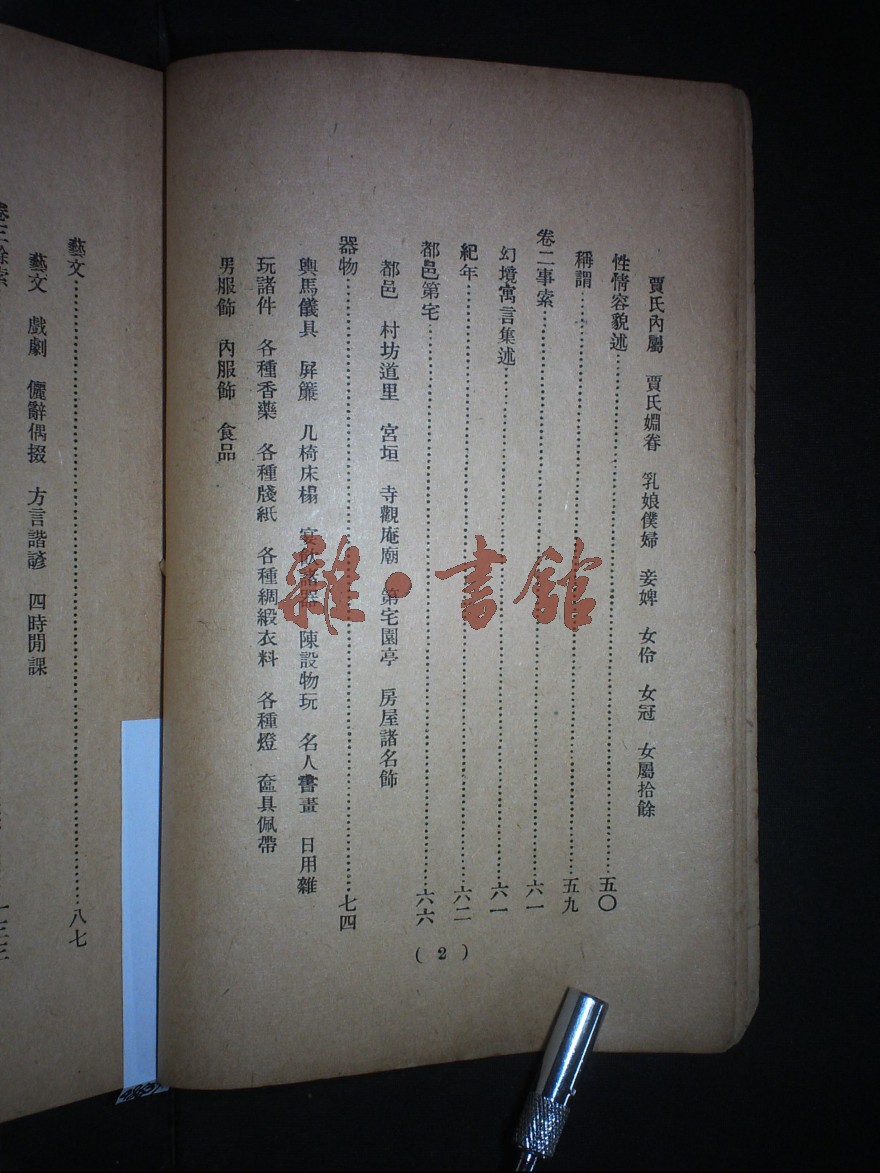 賈氏內屬　賈氏婣眷　乳娘僕婦　妾婢　女伶　女冠　女屬拾餘
性情容貌述……………………五〇
稱謂……………………五九
卷二事索……………………六一
幻境寓言集述……………………六一
紀年……………………六二
都邑第宅……………………六六
都邑　村坊道里　宮垣　寺觀庵廟　第宅園亭　房屋諸名飾
器物……………………七四
輿馬儀具　屏簾　几椅床榻　宴飲諸器　陳設物玩　名人書畫　日用雜
玩諸件　各種香藥　各種牋紙　各種綢緞衣料　各種燈　奩具佩帶
男服飾　內服飾　食品
( 2 )
藝文……………………八七
藝文　戲劇　儷辭偶掇　方言諧諺　四時閒課
卷三餘索
雜·書館